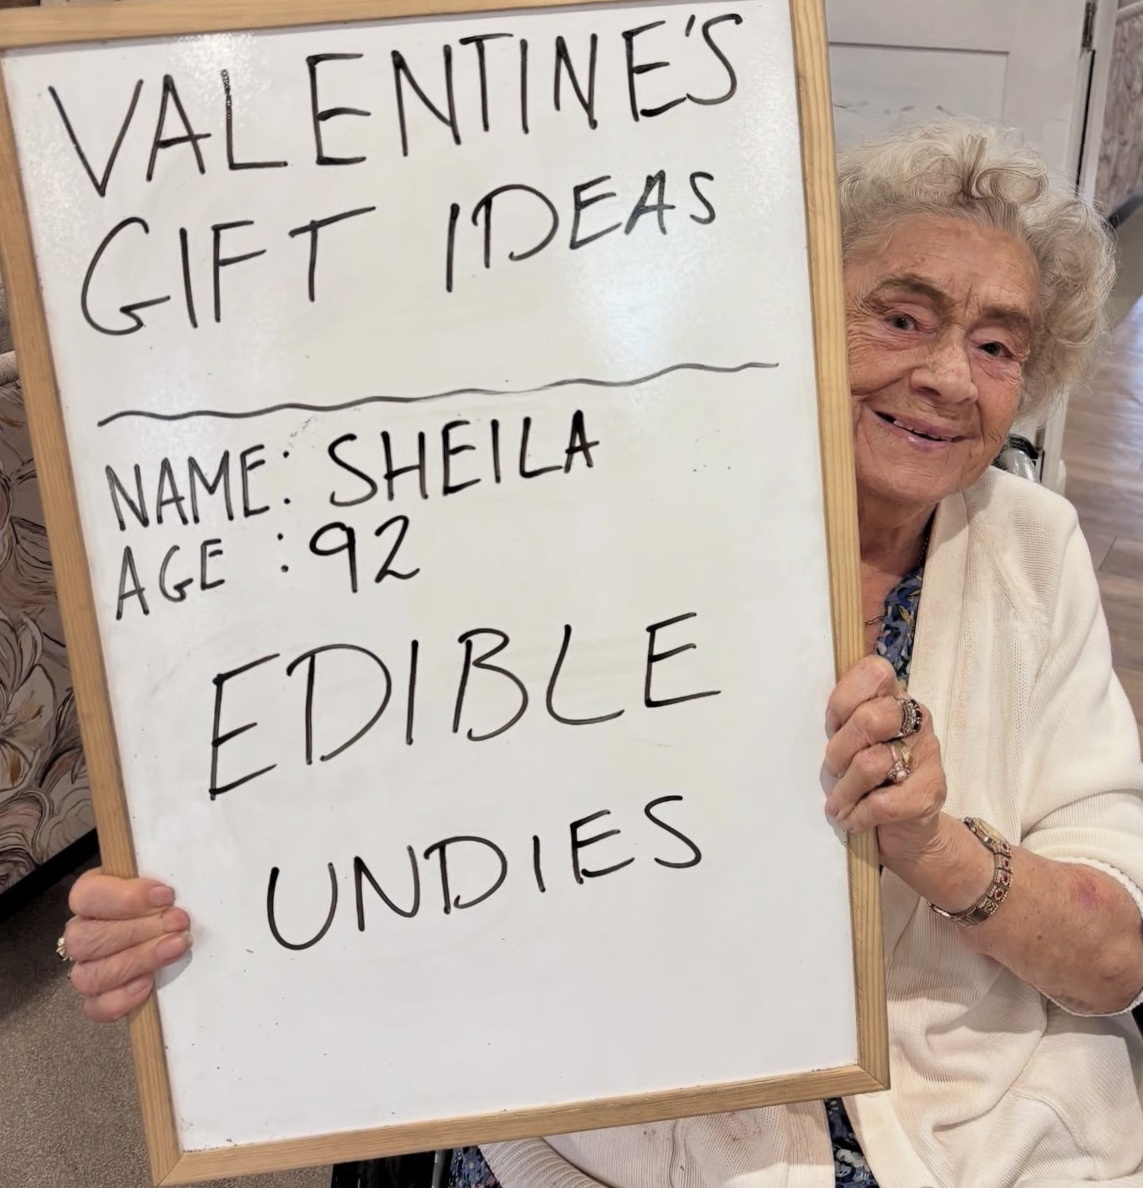 VALENTINE'S
GIFT IDEAS
NAME: SHEILA
AGE : 92
EDIBLE
UNDIES